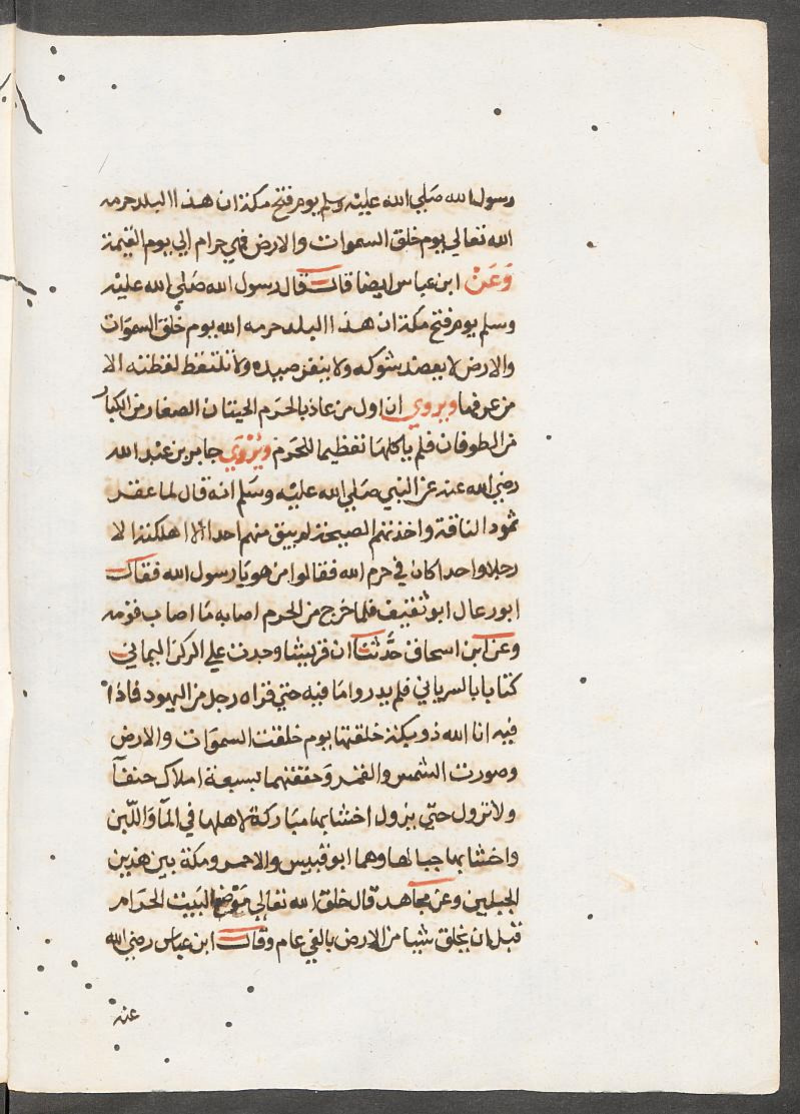 رسول الله صلي الله عليه وسلم يوم فتح مكة ان هذا البلد حرمه
الله تعالي يوم خلق السموات والارض فهي حرام الي يوم القيمة
وعن ابن عباس ايضا قال قال رسول الله صلي الله عليه
وسلم يوم فتح مكة ان هذا البلد حرمه الله يوم خلق السموات
والارض لا يعضد شوكه ولا ينفر صيده ولا تلتقط لقطته الا
من عرفها ويروي ان اول من عاذ بالحرم الحيتان الصغار من الكبار
من الطوفان فلم ياكلها تعظيما للحرم ويروي جابر بن عبد الله
رضي الله عنه عن النبي صلي الله عليه وسلم انه قال لما عقر
ثمود الناقة واخذتهم الصيحة لم يبق منهم احدا الا اهلكته الا
رجلا واحدا كان في حرم الله فقالوا من هو يا رسول الله فقال
ابو رعال ابو ثقيف فلما خرج من الحرم اصابه ما اصاب قومه
وعن ابن اسحاق حدثنا ان قريشا وجدت علي الركن اليماني
كتابا بالسرياني فلم يدروا ما فيه حتي قراه رجل من اليهود فاذا
فيه انا الله ذو بكة خلقتها يوم خلقت السموات والارض
وصورت الشمس والقمر وحففتهما بسبعة املاك حنفآ
ولا تزول حتي يزول اخشابها مباركة لاهلها في المآ واللبن
واخشابها جبالها وهما ابو قبيس والاحمر ومكة بين هذين
الجبلين وعن مجاهد قال خلق الله تعالي موضع البيت الحرام
قبل ان يخلق شيا من الارض بالفي عام وقال ابن عباس رضي الله
عنه